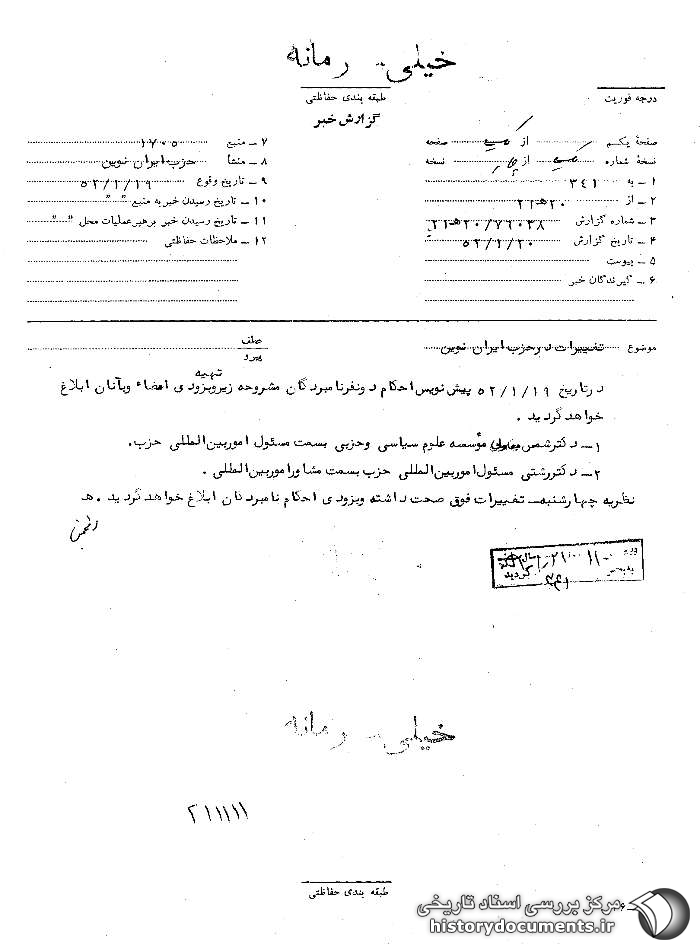 خیلی محرمانه
طبقه بندی حفاظتی
درجه فوریت
گزارش خبر
صفحهٔ یکم از یک صفحه
نسخهٔ شماره از نسخه
۱ – به ۳۴۱
۲ – از ۲۰ه‍۲۱
۳ – شماره گزارش ۲۰/۷۶۰۳۸ه‍۲۱
۴ – تاریخ گزارش ۵۲/۱/۲۰
۵ – پیوست
۶ – گیرندگان خبر
۷ – منبع ۱۷۰۵
۸ – منشأ حزب ایران نوین
۹ – تاریخ وقوع ۵۲/۱/۱۹
۱۰ – تاریخ رسیدن خبر به منبع " "
۱۱ – تاریخ رسیدن خبر برهبر عملیات محل " "
۱۲ – ملاحظات حفاظتی
موضوع تغییرات در حزب ایران نوین
عطف
پیرو
تهیه
در تاریخ ۵۲/۱/۱۹ پیش نویس احکام دونفر نامبردگان مشروحه زیر وبزودی امضاء وبآنان ابلاغ
خواهد گردید .
۱– دکتر شمس معاون مؤسسه علوم سیاسی وحزبی بسمت مسئول امور بین المللی حزب.
۲– دکتررشتی مسئول امور بین المللی حزب بسمت مشاور امور بین المللی .
نظریه چهارشنبه– تغییرات فوق صحت داشته وبزودی احکام نامبردگان ابلاغ خواهد گردید . ه‍
گردید
۳۴۱
خیلی محرمانه
۲۱۱۱۱۱
طبقه بندی حفاظتی
مرکز بررسی اسناد تاریخی
historydocuments.ir